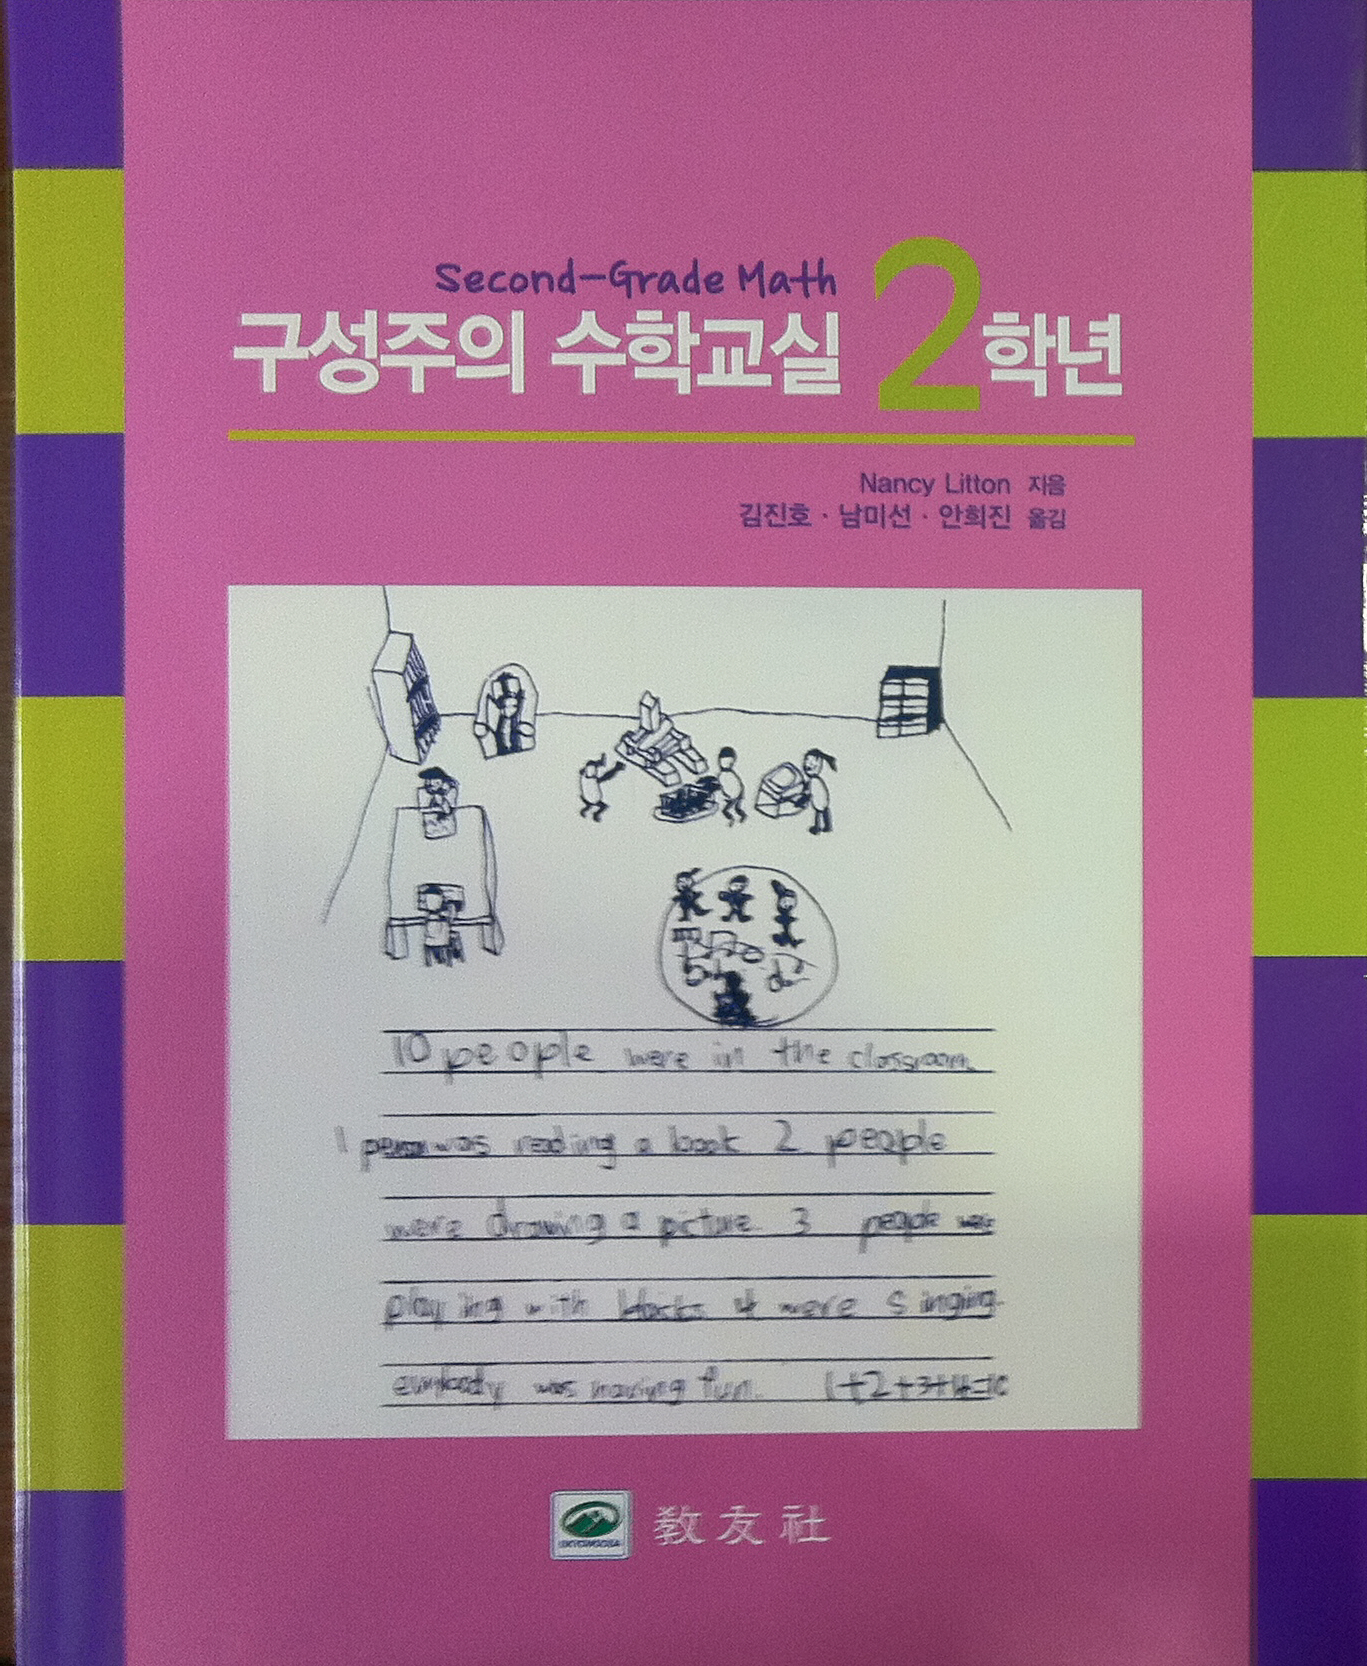 Second-Grade Math
구성주의 수학교실 2학년
Nancy Litton 지음
김진호 · 남미선 · 안희진 옮김
10 people were in the classroom
1 person was reading a book 2 people
were drawing a picture. 3 people were
playing with blocks 4 were singing.
was having fun. 1+2+3+4=10
敎友社